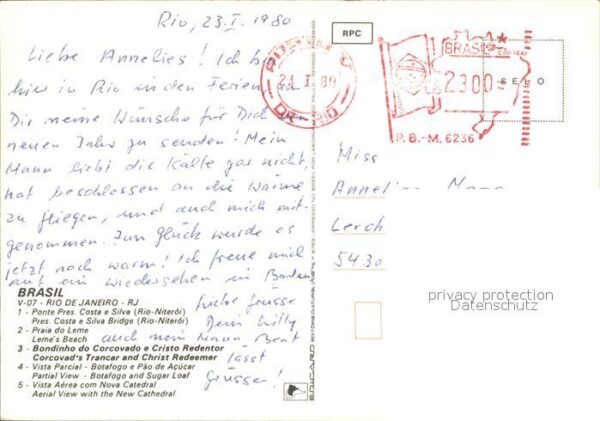 Rio, 23.I.1980
Liebe Annelies! Ich bin
hier in Rio in den Ferien
Dir meine Wünsche für Dich
neuen Jahr zu senden! Mein
Mann liebt die Kälte gar nicht,
hat beschlossen an die Wärme
zu fliegen, und auch mich mit-
genommen. Zum Glück wurde es
jetzt noch warm! Ich freue mich
auf ein wiedersehen in Baden
Liebe Grüsse
Dein Willy
auch mein Mann, Beat
lässt
grüssen!
BRASIL
V-07 - RIO DE JANEIRO - RJ
1 - Ponte Pres. Costa e Silva (Rio-Niterói)
Pres. Costa e Silva Bridge (Rio-Niterói)
2 - Praia do Leme
Leme's Beach
3 - Bondinho do Corcovado e Cristo Redentor
Corcovad's Trancar and Christ Redeemer
4 - Vista Parcial - Botafogo e Pão de Açúcar
Partial View - Botafogo and Sugar Loaf
5 - Vista Aérea com Nova Catedral
Aerial View with the New Cathedral
EDICARD
RPC
DR-RIO
BRASIL
CORREIO
2300
P.B.-M. 6236
SELO
Miss
Lerch
5430
privacy protection
Datenschutz